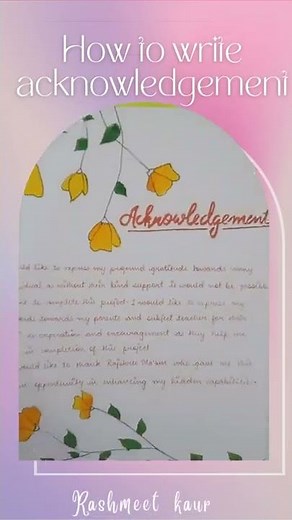 How to write
acknowledgement
Acknowledgement
like to express my profound gratitude towards many
without kind support it would not be possible
to complete this project. I would like to express my
towards my parents and subject teacher for their
co-operation and encouragement as they help me
in completion of this project
would like to thank Ma'am who gave me this
opportunity in enhancing my hidden capabilities.
Rashmeet kaur